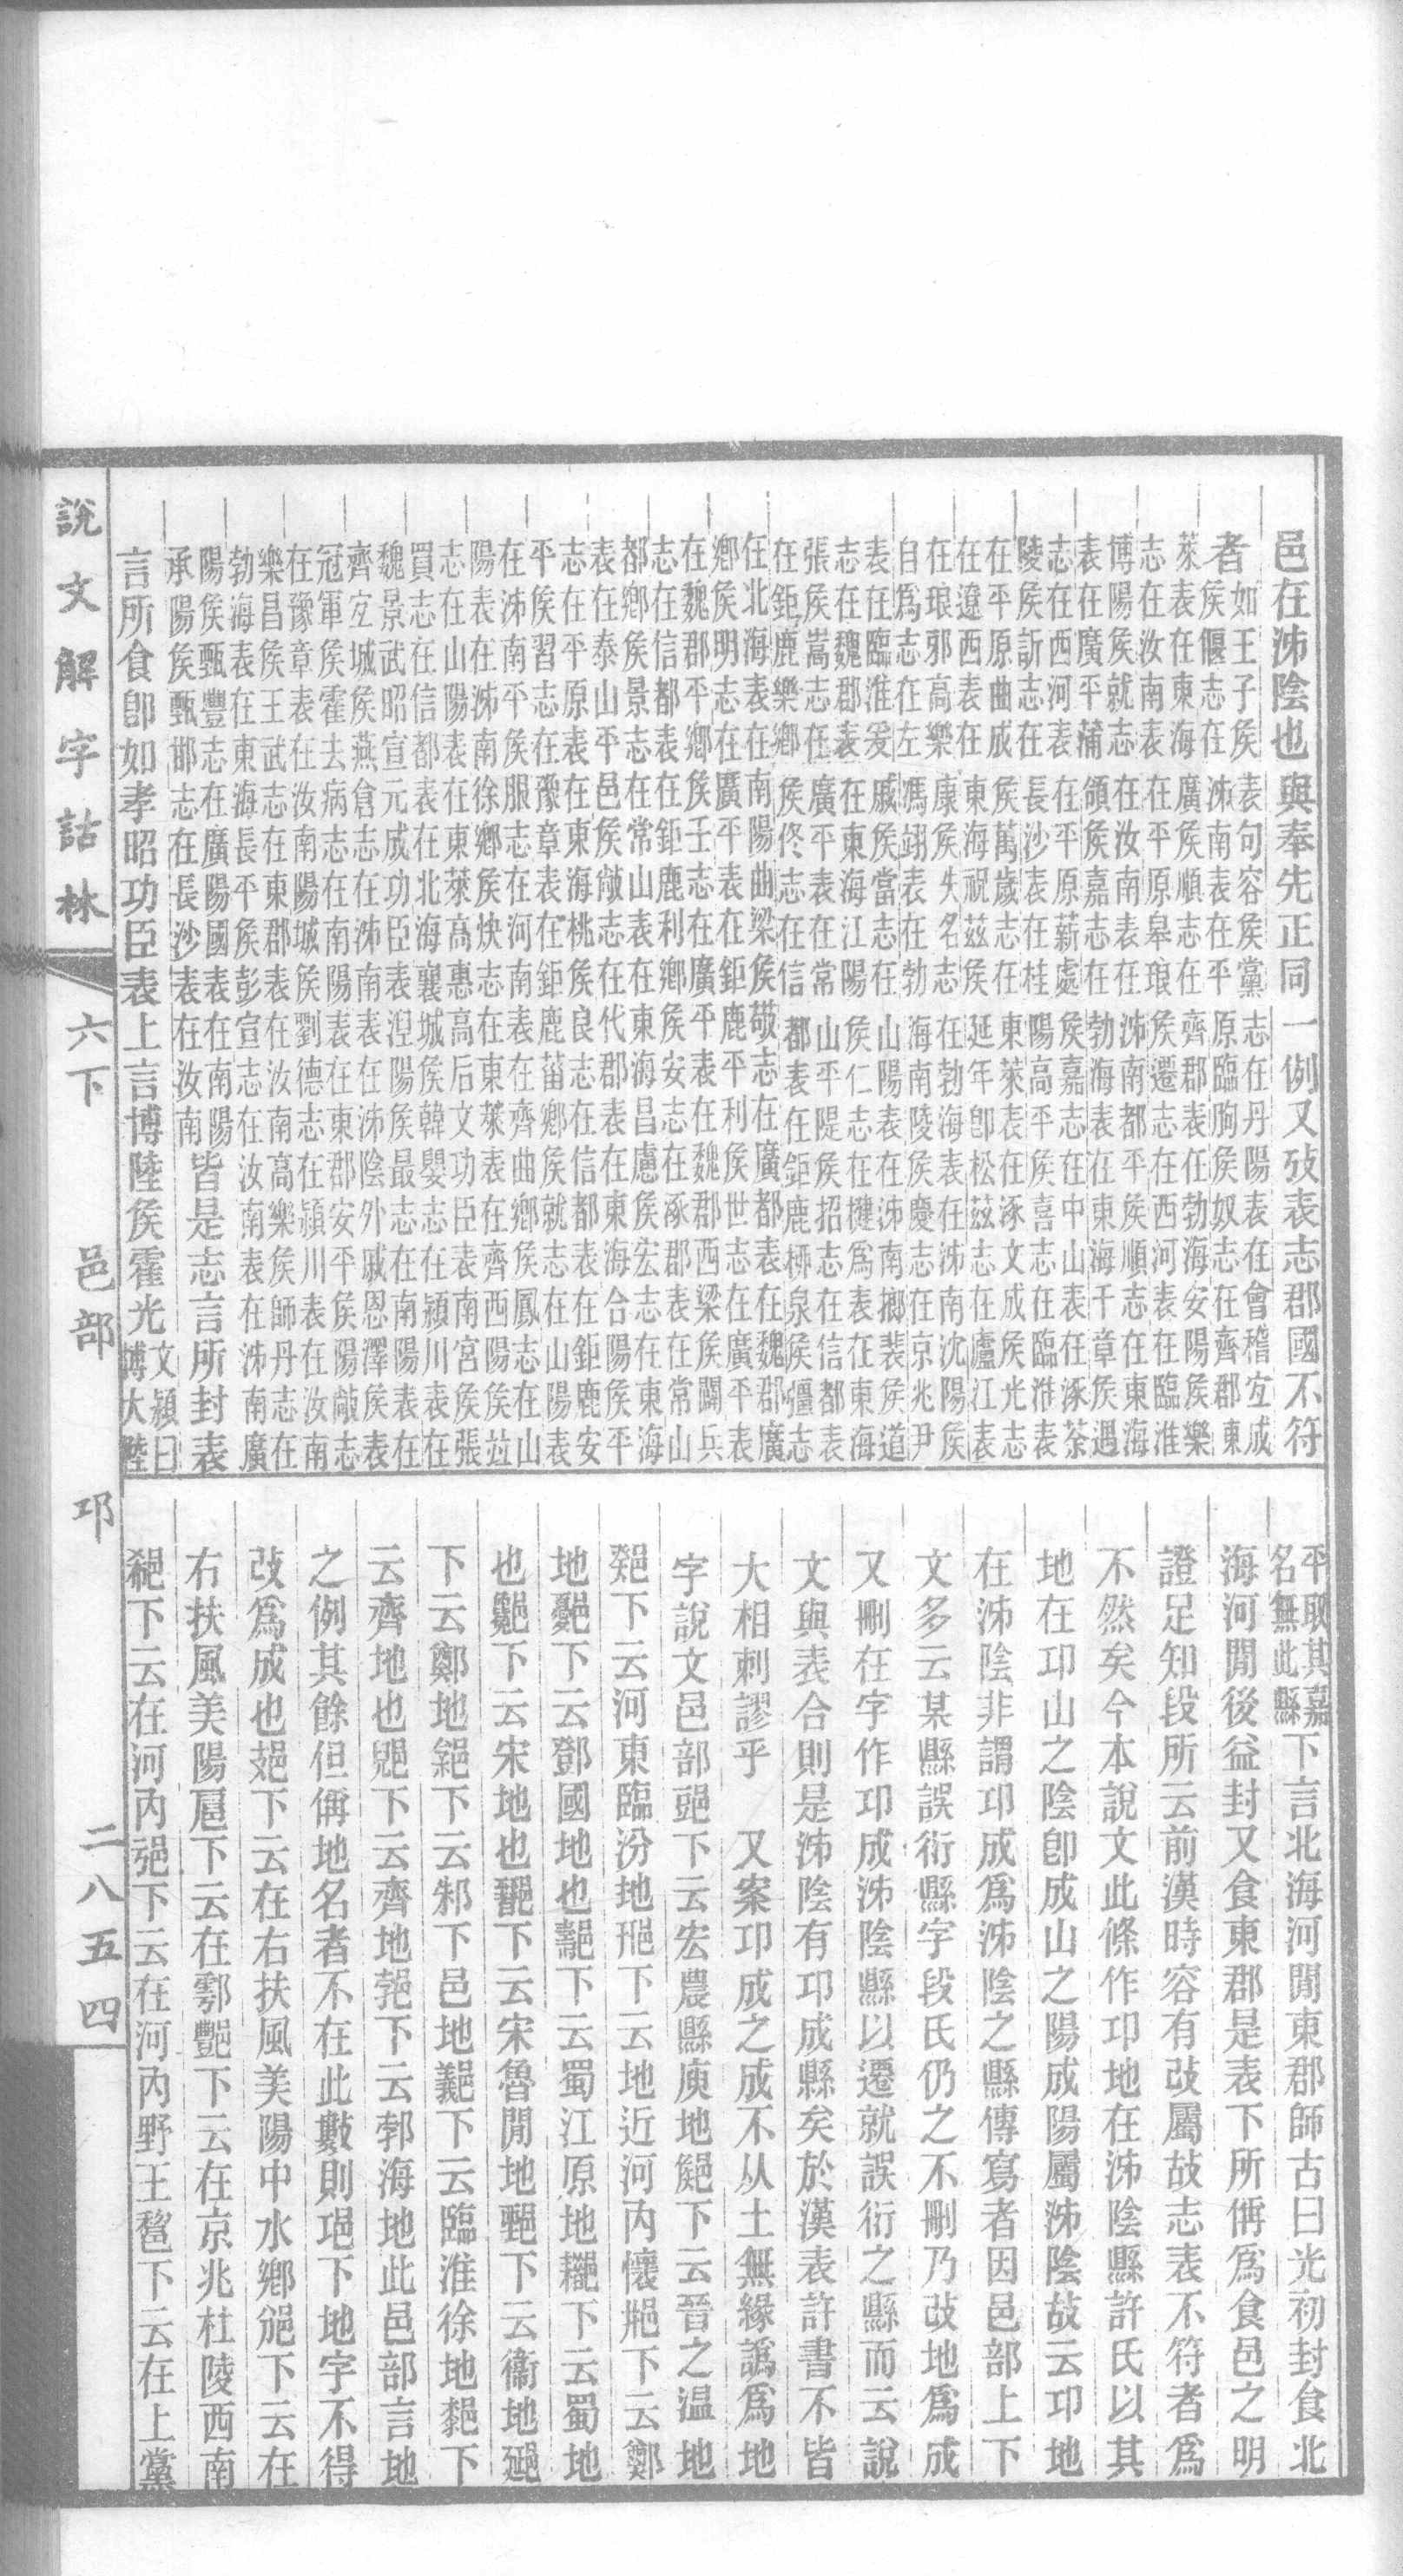 邑在泲陰也與奉先正同一例又攷表志郡國不符
者
如王子侯表句容侯黨志在丹陽表在會稽㝎成
侯偃志在泲南表在平原臨朐侯奴志在齊郡東
萊表在東海廣侯順志在齊郡表在勃海安陽侯樂
志在汝南表在平原皋琅侯遷志在西河表在臨淮
博陽侯就志在汝南表在泲南都平侯順志在東海
表在廣平蒲領侯嘉志在勃海表在東海千章侯遇
志在西河表在平原薪處侯嘉志在中山表在涿茶
陵侯訢志在長沙表在桂陽高平侯喜志在臨淮表
在平原曲成侯萬歲志在東萊表在涿文成侯光志
在遼西表在東海祝茲侯延年卽松茲志在廬江表
在琅邪高樂康侯失名志在勃海表在泲南沈陽侯
自爲志在左馮翊表在勃海南陵侯慶志在京兆尹
表在臨淮爰戚侯當志在山陽表在泲南揤裴侯道
志在魏郡表在東海江陽侯仁志在犍爲表在東海
張侯嵩志在廣平表在常山平隄侯招志在信都表
在鉅鹿樂鄉侯佟志在信都表在鉅鹿栁泉侯彊志
在北海表在南陽曲梁侯敬志在廣都表在魏郡廣
鄉侯明志在廣平表在鉅鹿平利侯世志在廣平表
在魏郡平鄉侯壬志在廣平表在魏郡西梁侯闢兵
志在信都表在鉅鹿利鄉侯安志在涿郡表在常山
都鄉侯景志在常山表在東海昌慮侯宏志在東海
表在泰山平邑侯敞志在代郡表在東海合陽侯平
志在平原表在東海桃侯良志在信都表在鉅鹿安
平侯習志在豫章表在鉅鹿甾鄉侯就志在山陽表
在泲南平侯服志在河南表在齊曲鄉侯鳳志在山
陽表在泲南徐鄉侯快志在東萊表在齊西陽侯竝
志在山陽表在東萊高惠高后文功臣表南宮侯張
買志在信都表在北海襄城侯韓嬰志在潁川表在
魏景武昭宣元成功臣表湼陽侯最志在南陽表在
齊㝎城侯燕倉志在泲南表在泲陰外戚恩澤侯表
冠軍侯霍去病志在南陽表在東郡安平侯陽敞志
在豫章表在汝南陽城侯劉德志在潁川表在汝南
樂昌侯王武志在東郡表在汝南高樂侯師丹志在
勃海表在東海長平侯彭宣志在汝南表在泲南廣
陽侯甄豐志在廣陽國表在南陽
承陽侯甄邯志在長沙表在汝南
皆是志言所封表
言所食卽如孝昭功臣表上言博陸侯霍光
文潁曰
博大陸
平取其嘉
名無此縣
下言北海河閒東郡師古曰光初封食北
海河閒後益封又食東郡是表下所偁爲食邑之明
證足知段所云前漢時容有攷屬故志表不符者爲
不然矣今本說文此條作邛地在泲陰縣許氏以其
地在邛山之陰卽成山之陽成陽屬泲陰故云邛地
在泲陰非謂邛成爲泲陰之縣傳寫者因邑部上下
文多云某縣誤衍縣字段氏仍之不刪乃攺地爲成
又刪在字作邛成泲陰縣以遷就誤衍之縣而云說
文與表合則是泲陰有邛成縣矣於漢表許書不皆
大相刺謬乎 又案邛成之成不从土無緣譌爲地
字說文邑部郖下云宏農縣庾地鄇下云晉之温地
下云河東臨汾地邢下云地近河內懷下云鄭
地鄾下云鄧國地也下云蜀江原地下云蜀地
也下云宋地也下云宋魯閒地下云衞地郔
下云鄭地下云邾下邑地下云臨淮徐地下
云齊地也郳下云齊地郣下云郣海地此邑部言地
之例其餘但偁地名者不在此數則下地字不得
攺爲成也下云在右扶風美陽中水鄉下云在
右扶風美陽扈下云在鄠酆下云在京兆杜陵西南
下云在河內下云在河內野王下云在上黨
說文解字詁林
六下
邑部
邛
二八五四